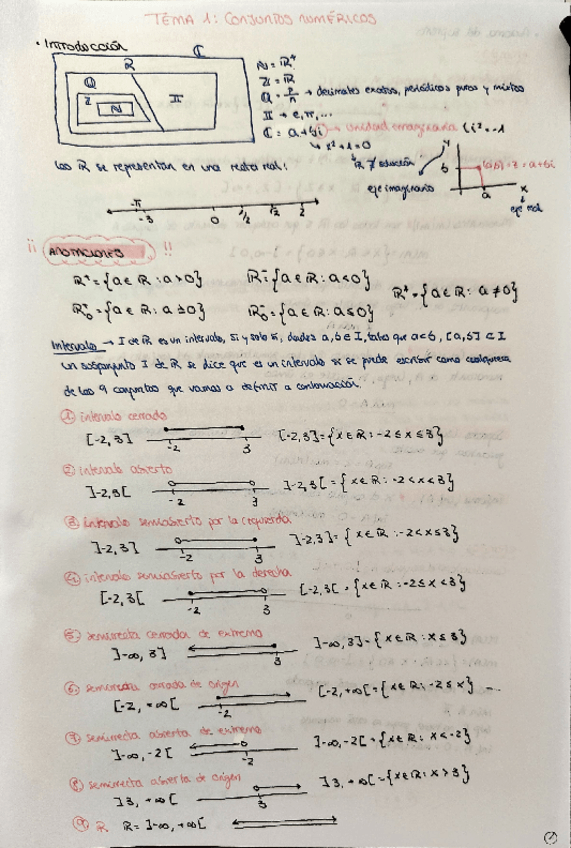 TEMA 1: CONJUNTOS NUMÉRICOS
• Introducción
C
R
Q
Z
N
II
N = R⁺
Z = R
Q = p/n → decimales exactos, periódicos puros y mixtos
II → e, π, ...
C = a + bi → unidad imaginaria i² = -1
↳ x² + 1 = 0
R ≠ solución
Los R se representan en una recta real:
eje imaginario
y
b
(a,b) = z = a + bi
a
x
eje real
-π -3 0 1/2 √2 2
¡¡ ANOTACIONES !!
R⁺ = {a ∈ R : a > 0} R⁻ = {a ∈ R : a < 0} R* = {a ∈ R : a ≠ 0}
R₀⁺ = {a ∈ R : a ≥ 0} R₀⁻ = {a ∈ R : a ≤ 0}
Intervalo → I de R es un intervalo, si y solo si, dados a, b ∈ I, tales que a < b, [a, b] ⊂ I
Un subconjunto I de R se dice que es un intervalo si se puede escribir como cualquiera
de los 9 conjuntos que vamos a definir a continuación.
① intervalo cerrado
[-2, 3] -2 3 [-2, 3] = {x ∈ R : -2 ≤ x ≤ 3}
② intervalo abierto
]-2, 3[ -2 3 ]-2, 3[ = {x ∈ R : -2 < x < 3}
③ intervalo semiabierto por la izquierda
]-2, 3] -2 3 ]-2, 3] = {x ∈ R : -2 < x ≤ 3}
④ intervalo semiabierto por la derecha
[-2, 3[ -2 3 [-2, 3[ = {x ∈ R : -2 ≤ x < 3}
⑤ semirrecta cerrada de extremo
]-∞, 3] 3 ]-∞, 3] = {x ∈ R : x ≤ 3}
⑥ semirrecta cerrada de origen
[-2, +∞[ -2 [-2, +∞[ = {x ∈ R : -2 ≤ x}
⑦ semirrecta abierta de extremo
]-∞, -2[ -2 ]-∞, -2[ = {x ∈ R : x < -2}
⑧ semirrecta abierta de origen
]3, +∞[ 3 ]3, +∞[ = {x ∈ R : x > 3}
⑨ R R = ]-∞, +∞[
①